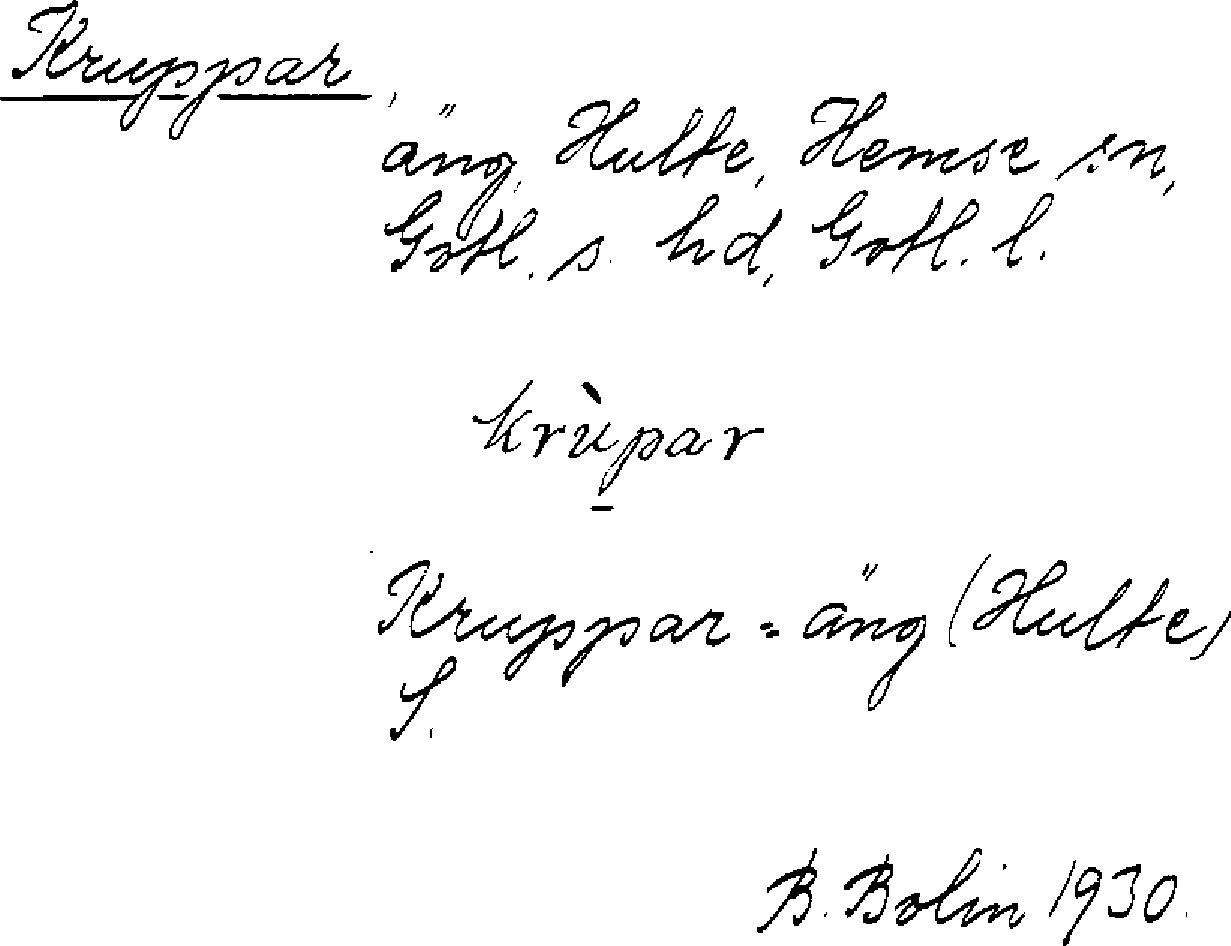 Kruppar,
äng, Hulte, Hemse sn,
Gotl. s. hd, Gotl. l.
krùp̠ar
Kruppar-äng (Hulte)
S.
B. Bolin 1930.